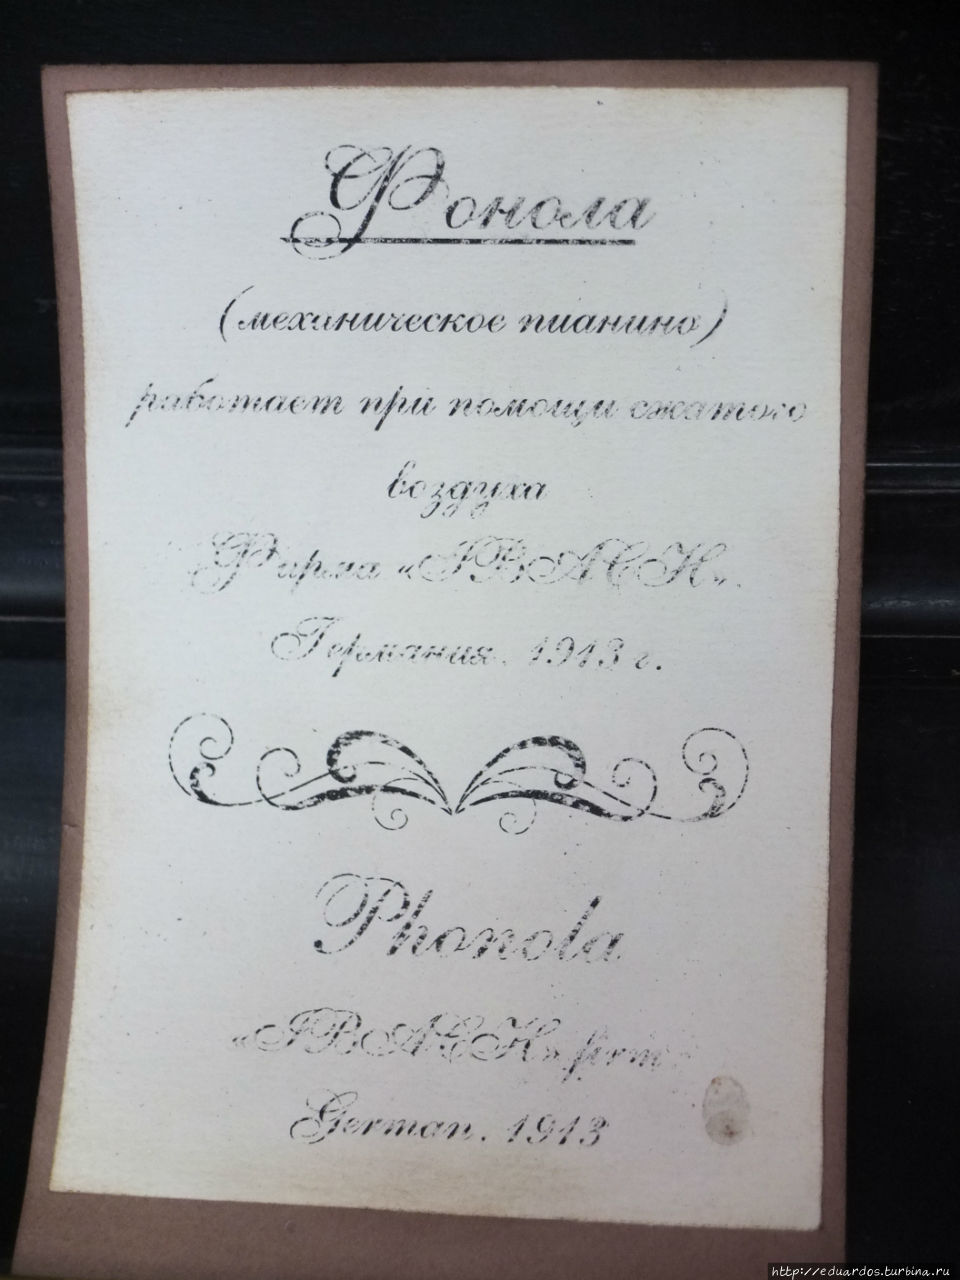 Фонола
(механическое пианино)
работает при помощи сжатого
воздуха
Фирма «IBACH».
Германия. 1913 г.
Phonola
«IBACH» firm
German. 1913
http://eduardos.turbina.ru